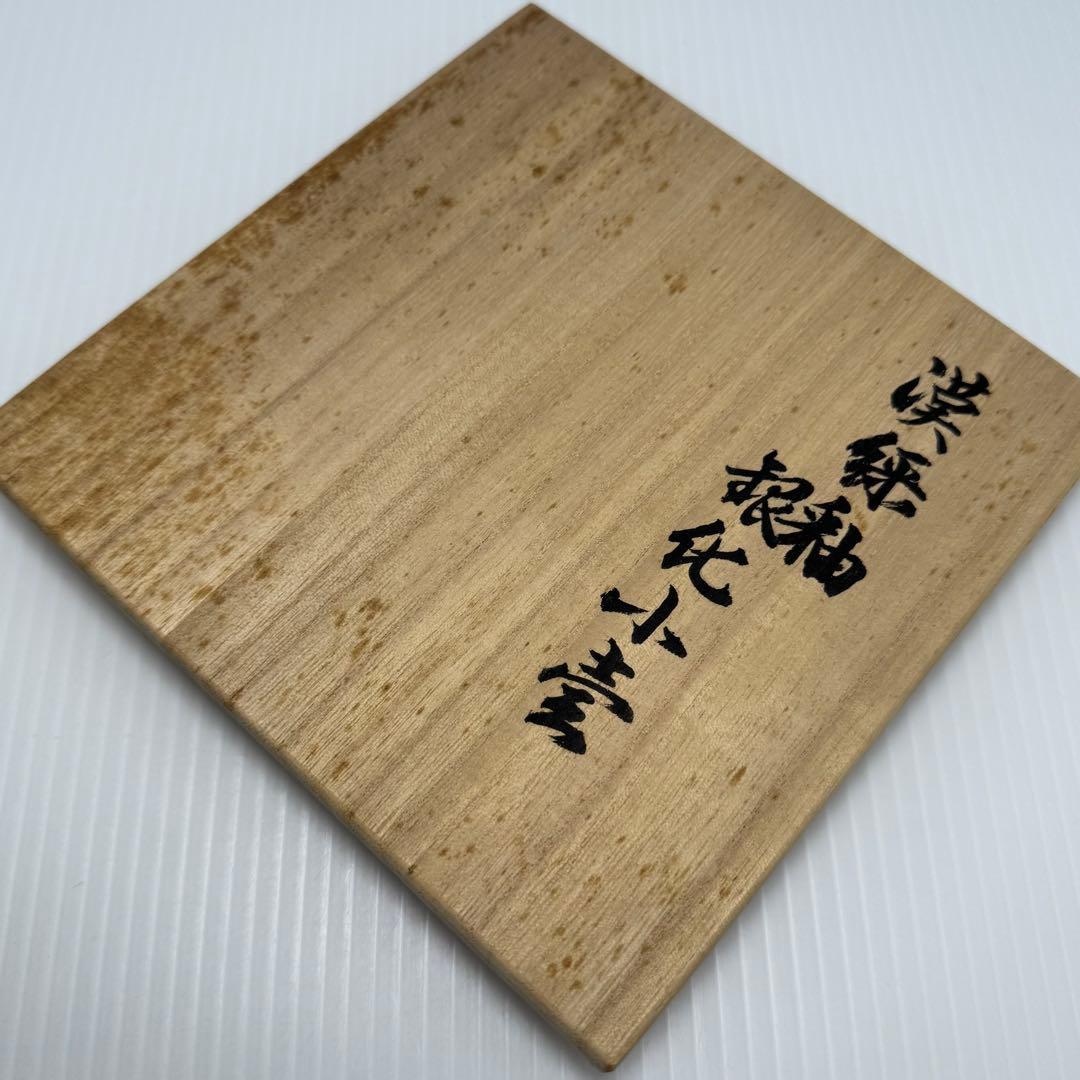 漢緑釉
銀化小壷